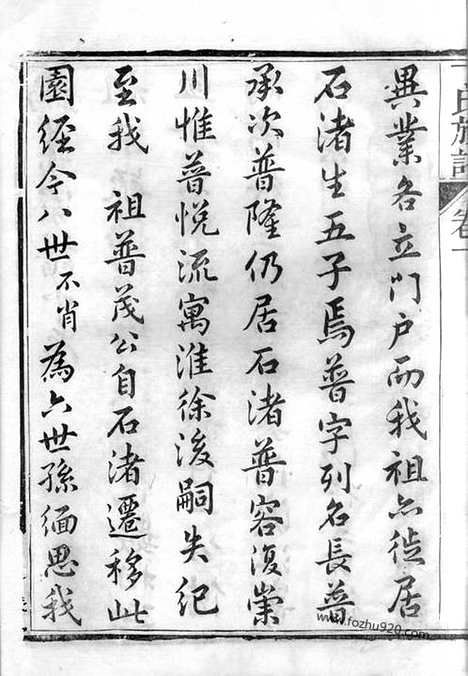 氏族譜
卷一
異業各立門户而我祖亦徙居
石渚生五子焉普字列名長普
承次普隆仍居石渚普容復業
川惟普悦流寓淮徐後嗣失紀
至我 祖普茂公自石渚遷移此
園經今八世不肖為六世孫緬思我
www.fozhu920.com